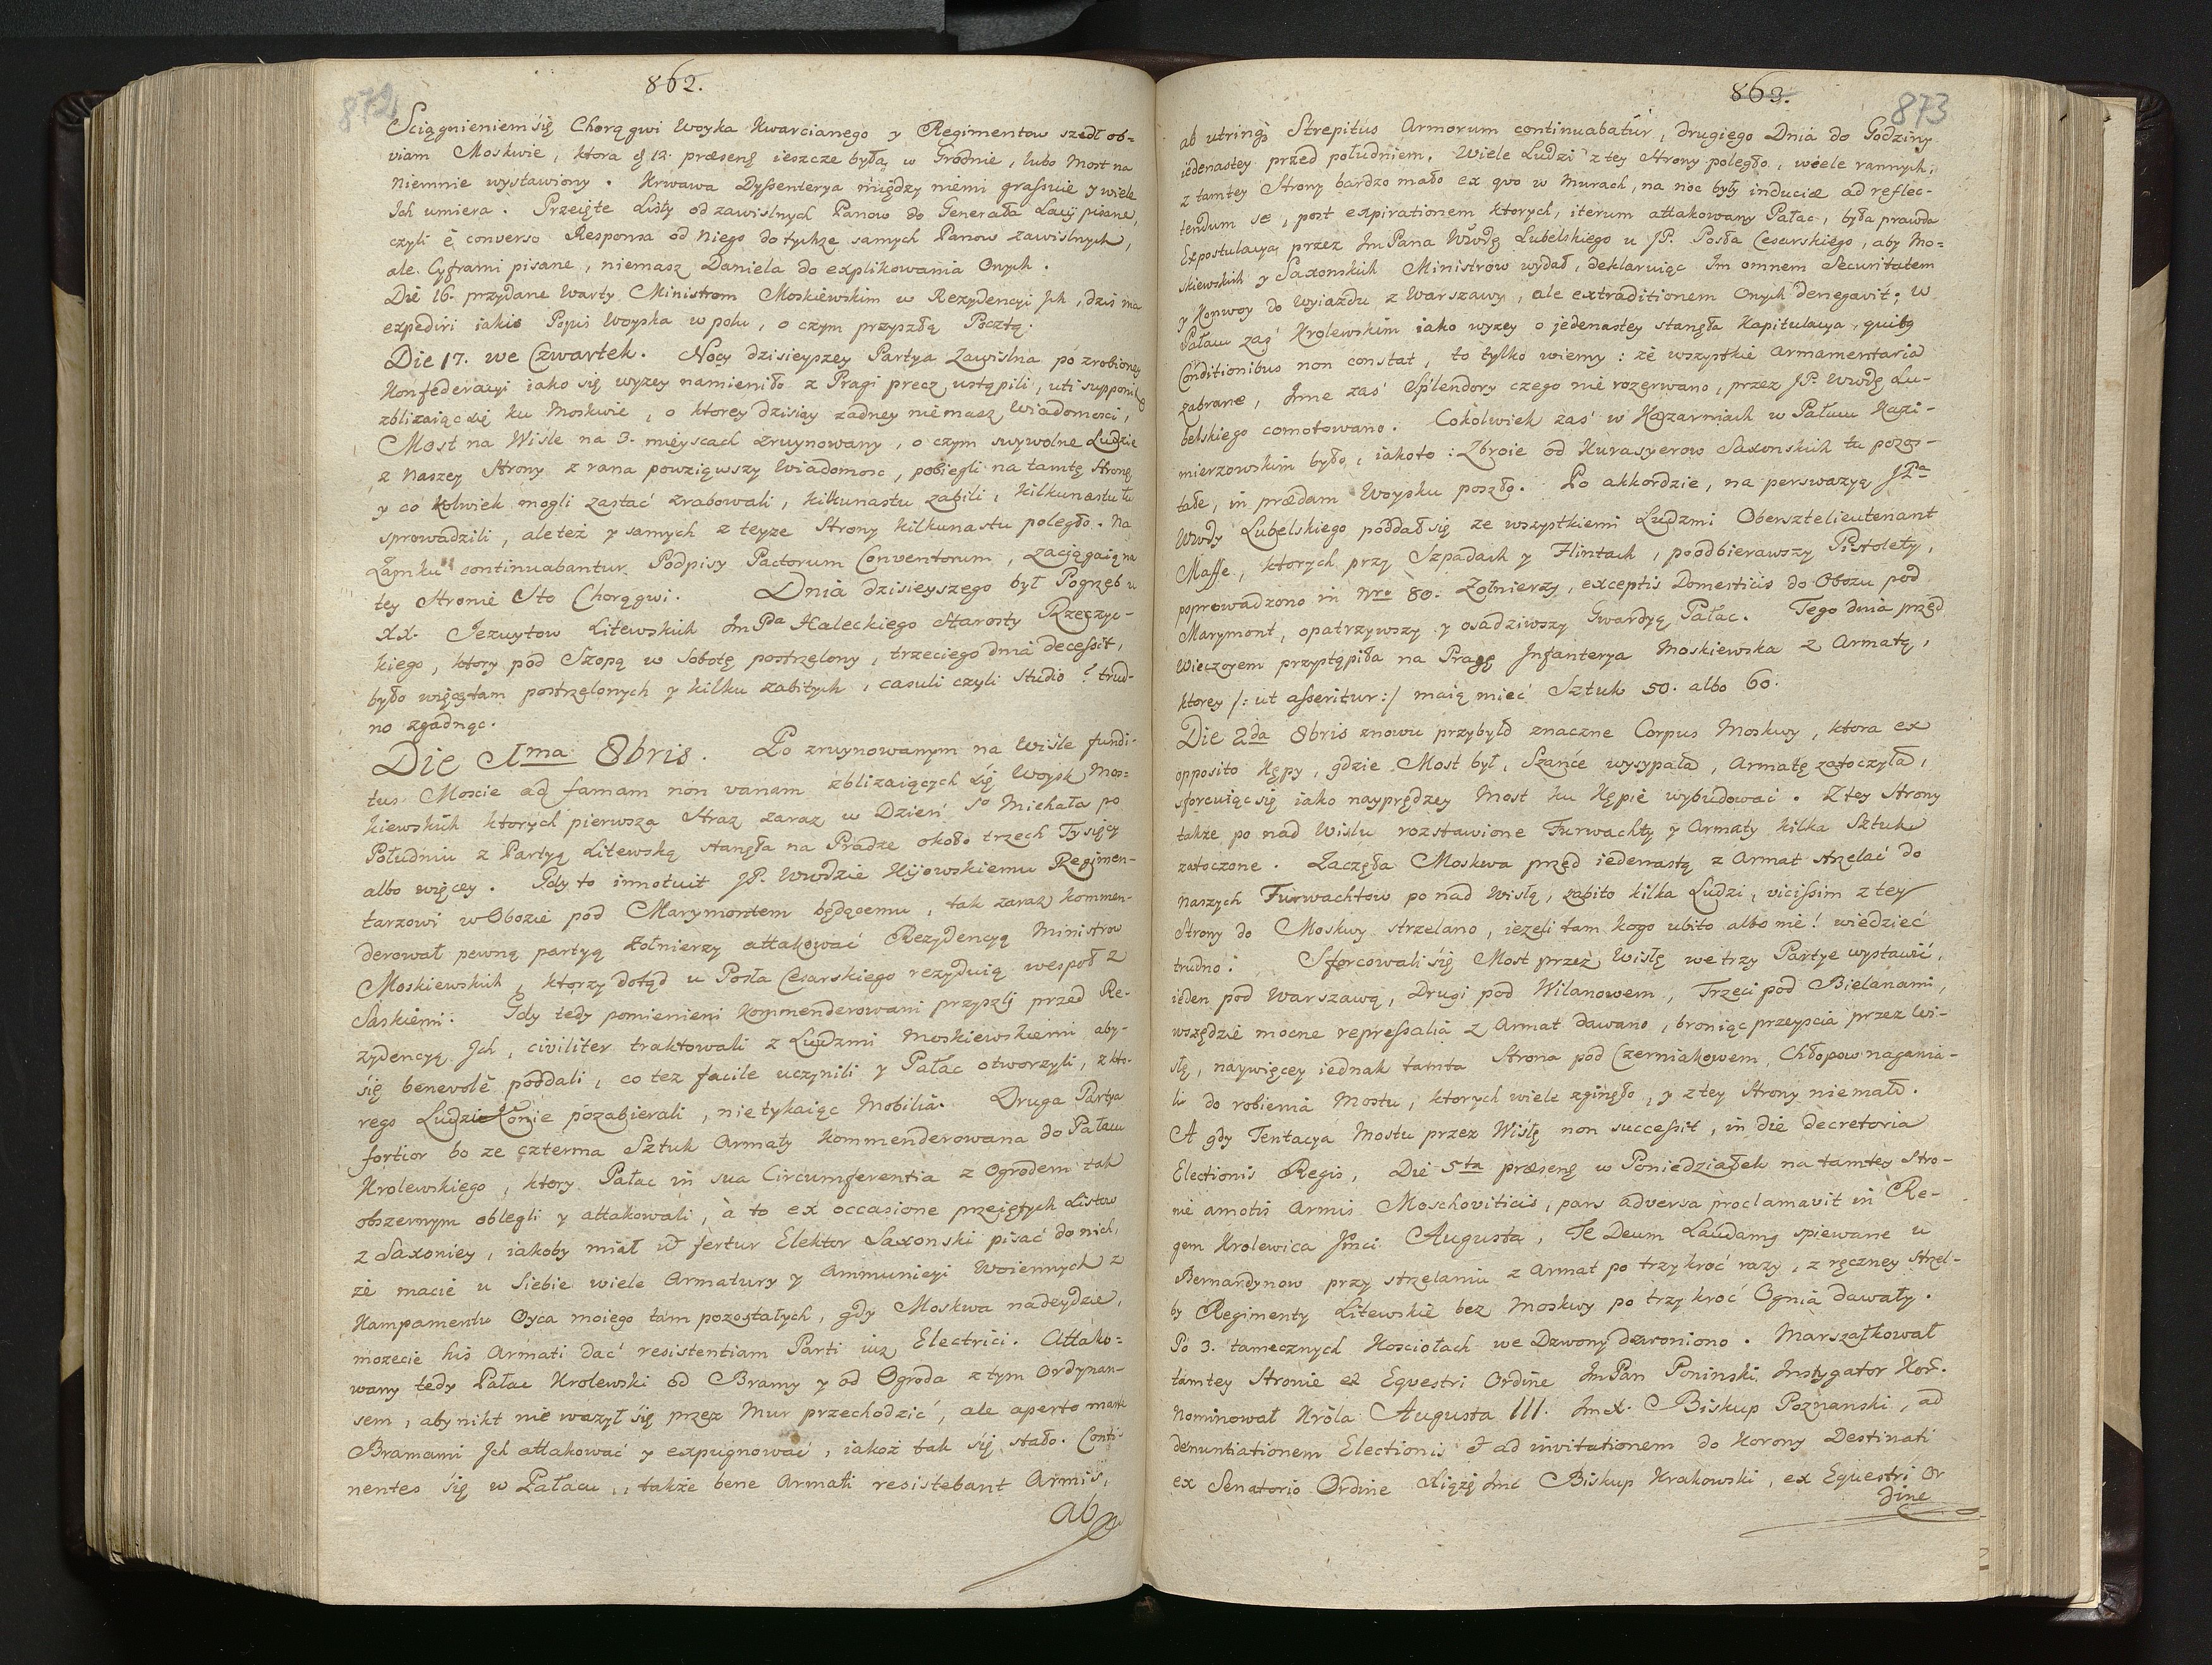 862.
872
Sciągnieniem się Chorągwi Woyska Kwarcianego y Regimentow szedł ob-
viam Moskwie, ktora 12. præsens ieszcze była w Grodnie, lubo Most na
Niemnie wystawiony. Krwawa Dyssenterya między niemi grassuie y wiele
Ich umiera. Przeięte Listy od zawislnych Panow do Generała Lacij pisane,
czyli è converso Responsa od Niego do tychze samych Panow zawislnych,
ale Cyframi pisane, niemasz Daniela do explikowania Onych.
Die 16. przydane Warty Ministrom Moskiewskim w Rezydencyi Ich, dzis ma
expediri iakis Popis Woyska w polu, o czym przyszłą Pocztą.
Die 17. we Czwartek. Nocy dzisieyszey Partya Zawislna po zrobioney
Konfederacyi iako się wyzey namieniło z Pragi precz ustąpili, uti supponit
zblizaiąc się ku Moskwie, o ktorey dzisiay zadney niemasz Wiadomosci,
Most na Wisle na 3. mieyscach zruynowany, o czym swywolne Ludzie
z Naszey Strony z rana powziąwszy Wiadomosc, pobiegli na tamtę Stronę
y co kolwiek mogli zastać zrabowali, kilkunastu zabili, kilkunastu tu
sprowadzili, ale też y samych z teyze Strony kilkunastu poległo. Na
Zamku continuabantur Podpisy Pactorum Conventorum, zaciągaią na
tey Stronie Sto Chorągwi. Dnia dzisieyszego był Pogrzeb u
XX. Jezuytow Litewskich Im Pa Haleckiego Starosty Rzeczyc-
kiego, ktory pod Szopą w Sobotę postrzelony, trzeciego dnia decessit,
było więcey tam postrzelonych y kilku zabitych, casuli czyli Studio? trud-
no zgadnąc.
Die Ima 8bris. Po zruynowanym na Wisle fundi-
tus Moscie ad famam non vanam zblizaiących się Woysk Mos-
kiewskich ktorych pierwsza Straz zaraz w Dzień So Michała po
Południu z Partyą Litewską stanęła na Pradze około trzech Tysięcy
albo więcey. Gdy to innotuit JP. Wwdzie Kijowskiemu Regimen-
tarzowi w Obozie pod Marymontem będącemu, tak zaraz kommen-
derował pewną partyą Zołnierzy attakować Rezydencyą Ministrow
Moskiewskich, ktorzy dotąd u Posła Cesarskiego rezyduią wespoł z
Saskiemi. Gdy tedy pomienieni kommenderowani przyszli przed Re-
zydencyą Ich, civiliter traktowali z Ludzmi Moskiewskiemi aby
się benevolè poddali, co tez facile uczynili y Pałac otworzyli, z kto-
rego Ludzi Konie pozabierali, nie tykaiąc Mobilia. Druga Partya
fortior bo ze czterma Sztuk Armaty kommenderowana do Pałacu
Krolewskiego, ktory Pałac in sua Circumferentia z Ogrodem tak
obszernym oblegli y attakowali, à to ex occasione przeiętych Listow
z Saxoniey, iakoby miał ut fertur Elektor Saxonski pisać do nich,
że macie u Siebie wiele Armatury y Ammunicyi Woiennych z
Kampamentu Oyca moiego tam pozostałych, gdy Moskwa nadeydzie,
mozecie his Armati dać resistentiam Parti iuz Electrici. Attako-
wany tedy Pałac Krolewski od Bramy y od Ogroda z tym Ordynan-
sem, aby nikt nie wazył się przez Mur przechodzić, ale aperto marte
Bramami Ich attakować y expugnować, iakoż tak się stało. Conti-
nentes się w Pałacu, takze bene Armati resistebant Armis,
ab
863.
873
ab utrinqs Strepitus Armorum continuabatur, drugiego Dnia do Godziny
iedenastey przed południem. Wiele Ludzi z tey Strony poległo, wiele rannych,
z tamtey Strony bardzo mało ex quo w Murach, na noc były induciæ ad reflec-
tendum se, post expirationem ktorych, iterum attakowany Pałac, była prawda
Expostulacya przez Im Pana Wwdę Lubelskiego u JP. Posła Cesarskiego, aby Mo-
skiewskich y Saxonskich Ministrow wydał, deklaruiąc Im omnem Securitatem
y Konwoy do Wyiazdu z Warszawy, ale extraditionem Onych denegavit. W
Pałacu zaś Krolewskim iako wyzey o jedenastey stanęła Kapitulacya, quibq
Conditionibus non constat, to tylko wiemy: ze wszystkie Armamentaria
zabrane, Inne zaś Splendory czego nie rozerwano, przez JP. Wwdę Lu-
belskiego comotowano. Cokolwiek zaś w Kazarniach w Pałacu Kazi-
mierzowskim było, iakoto: Zbroie od Kurasyerow Saxonskich tu pozos-
tałe, in prædam Woysku poszło. Po akkordzie, na perswazyą JPa
Wwdy Lubelskiego poddał się ze wszystkiemi Ludzmi Obersztelieutenant
Maffe, ktorych przy Szpadach y Flintach, poodbierawszy Pistolety,
poprowadzono in Nro 80. Zołnierzy, exceptis Domesticis do Obozu pod
Marymont, opatrzywszy y osadziwszy Gwardyą Pałac. Tego dnia przed
Wieczorem przystąpiła na Pragę Infanterya Moskiewska z Armatą,
ktorey /: ut asseritur :/ maią mieć Sztuk 50. albo 60.
Die 2da 8bris znowu przybyło znaczne Corpus Moskwy, ktora ex
opposito Kępy, gdzie Most był, Szańce wysypała, Armatę zatoczyła,
sforcuiąc się iako nayprędzey Most ku Kępie wybudować. Z tey Strony
takze po nad Wisłu rozstawione Furwachty y Armaty kilka Sztuk
zatoczone. Zaczęła Moskwa przed iedenastą z Armat strzelać do
naszych Furwachtow po nad Wisłą, zabito kilka Ludzi, vicissim z tey
Strony do Moskwy strzelano, iezeli tam kogo ubito albo nie! wiedzieć
trudno. Sforcowali się Most przez Wisłę we trzy Partye wystawić,
ieden pod Warszawą, Drugi pod Wilanowem, Trzeci pod Bielanami,
wszędzie mocne repressalia z Armat dawano, broniąc przeyscia przez Wi-
słę, naywięcey iednak tamta Strona pod Czerniakowem, Chłopow nagania-
li do robienia Mostu, ktorych wiele zginęło, y z tey Strony niemało.
A gdy Tentacya Mostu przez Wisłę non successit, in die decretoria
Electionis Regis, Die 5ta præsens w Poniedziałek na tamtey Stro-
nie amotis Armis Moschoviticis, pars adversa proclamavit in Re-
gem Krolewica Jmci Augusta, Te Deum Laudamq spiewane u
Bernardynow przy strzelaniu z Armat po trzy kroć razy, z ręczney Strzel-
by Regimenty Litewskie bez Moskwy po trzy kroć Ognia dawały.
Po 3. tamecznych Kosciołach we Dzwony dzwoniono. Marszałkował
tamtey Stronie ex Equestri Ordine Im Pan Poninski Instygator Kor.
Nominował Króla Augusta III. ImX. Biskup Poznanski, ad
denuntiationem Electionis et ad invitationem do Korony Destinati
ex Senatorio Ordine Xiążę Imć Biskup Krakowski, ex Equestri Or
dine